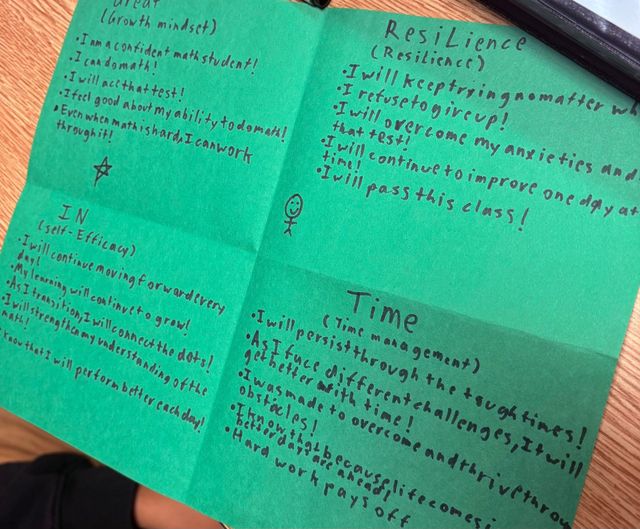 Great
(Growth mindset)
• I am a confident math student!
• I can do math!
• I will ace that test!
• I feel good about my ability to do math!
• Even when math is hard, I can work
through it!
ResiLience
(Resilience)
• I will keep trying no matter
• I refuse to give up!
• I will overcome my anxieties and
that test!
• I will continue to improve one day at
time!
• I will pass this class!
IN
(self-Efficacy)
• I will continue moving forward every
day!
• My learning will continue to grow!
• As I transition, I will connect the dots!
• I will strengthen my understanding of the
math!
know that I will perform better each day!
Time
(Time management)
• I will persist through the tough times!
• As I face different challenges, I will
get better with time!
• I was made to overcome and thrive
obstacles!
• I know that because life comes
better days are ahead!
• Hard work pays off